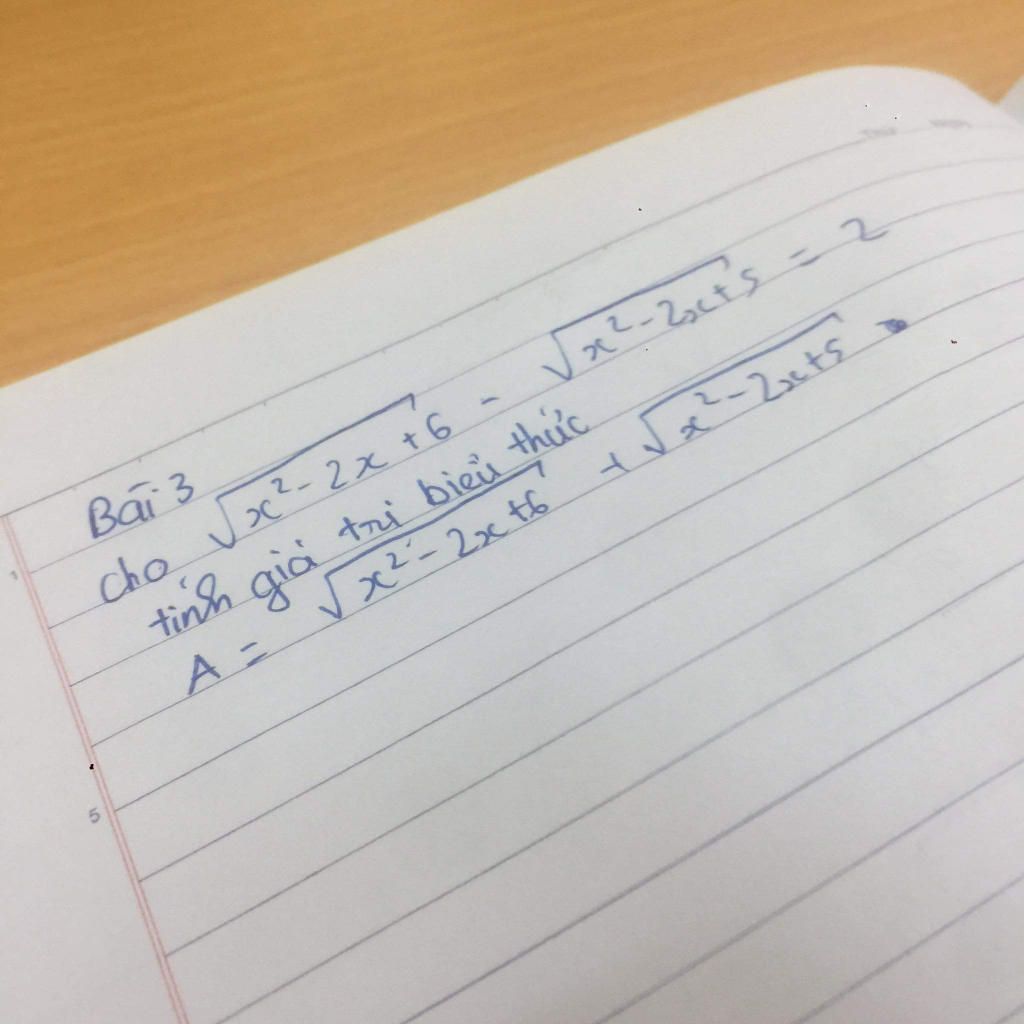 Bài 3
cho √(x² - 2x + 6) - √(x² - 2x + 5) = 2
tính giá trị biểu thức
A = √(x² - 2x + 6) + √(x² - 2x + 5)
5